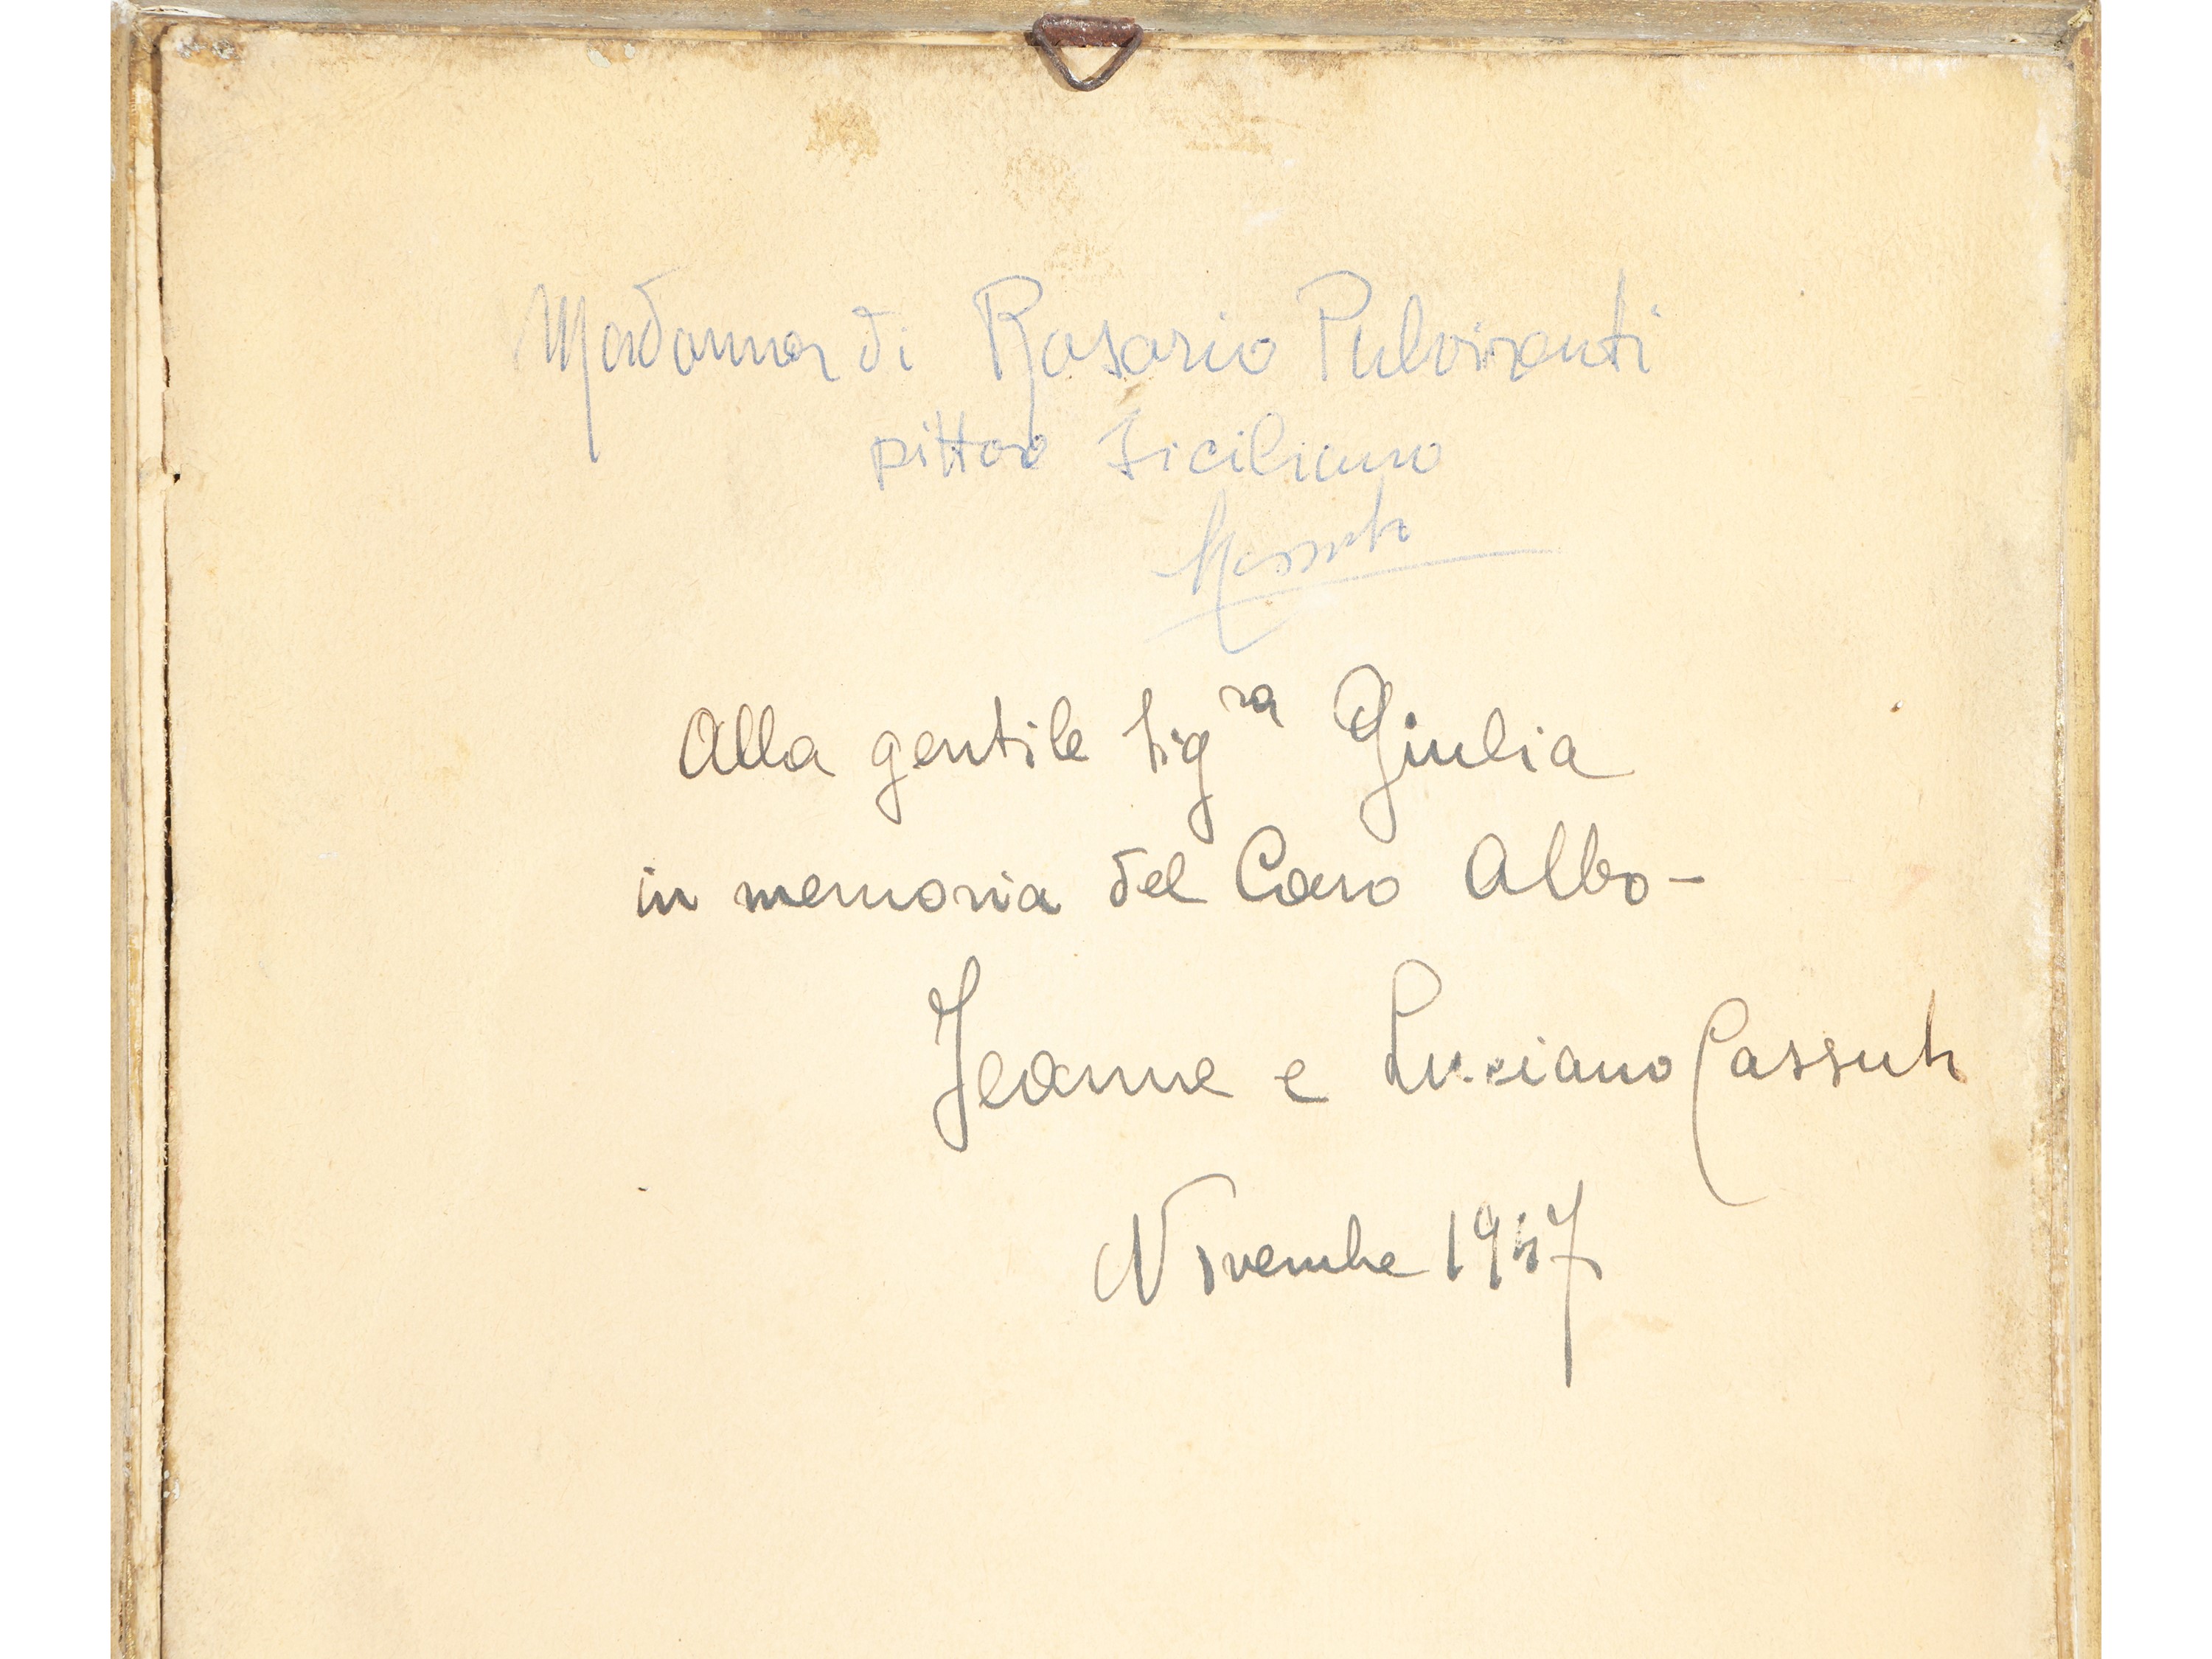 Madonna di Rosario Pulvirenti
pittore Siciliano
Alla gentile Sig.ra Giulia
in memoria del Caro Albo -
Jeanne e Luciano Cassuto
Novembre 1947